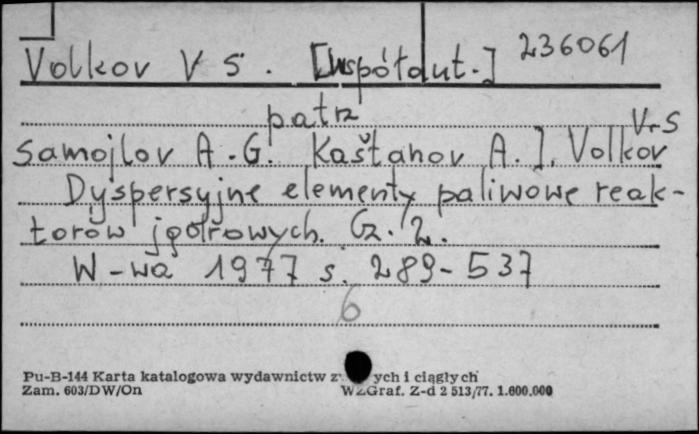 Volkov V S. [Współaut.] 236061
patrz
Samojlov A.G. Kaštanov A.I. Volkov V.S
Dyspersyjne elementy paliwowe reak-
torów jądrowych. Cz. 2.
W-wa 1977 s. 289-537
6
Pu-B-144 Karta katalogowa wydawnictw z ych i ciągłych
Zam. 603/DW/On WZGraf. Z-d 2 513/77. 1.600.000